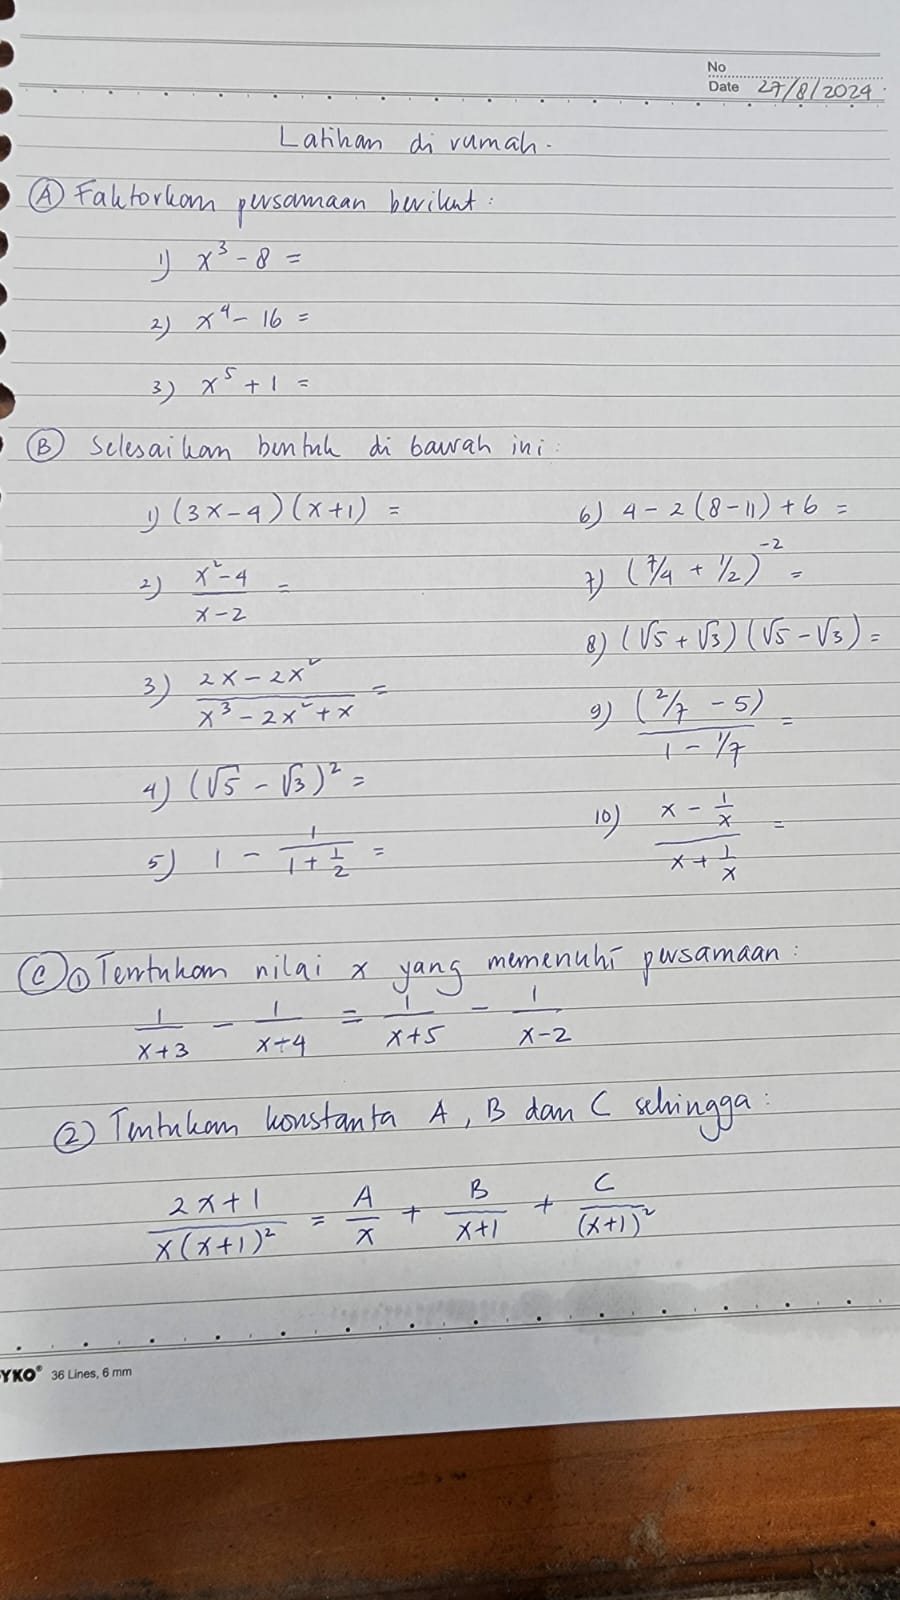 No
Date 27/8/2024.
Latihan di rumah.
Ⓐ Faktorkan persamaan berikut :
1) x³ - 8 =
2) x⁴ - 16 =
3) x⁵ + 1 =
Ⓑ Selesaikan bentuk di bawah ini :
1) (3x - 4)(x+1) =
2) (x² - 4)/(x - 2) =
3) (2x - 2x²)/(x³ - 2x² + x) =
4) (√5 - √3)² =
5) 1 - 1/(1 + 1/2) =
6) 4 - 2(8 - 11) + 6 =
7) (7/4 + 1/2)⁻² =
8) (√5 + √3)(√5 - √3) =
9) (2/7 - 5)/(1 - 1/7) =
10) (x - 1/x)/(x + 1/x) =
Ⓒ ① Tentukan nilai x yang memenuhi persamaan :
1/(x+3) - 1/(x+4) = 1/(x+5) - 1/(x-2)
② Tentukan konstanta A, B dan C sehingga :
(2x+1)/(x(x+1)²) = A/x + B/(x+1) + C/(x+1)²
YKO® 36 Lines, 6 mm